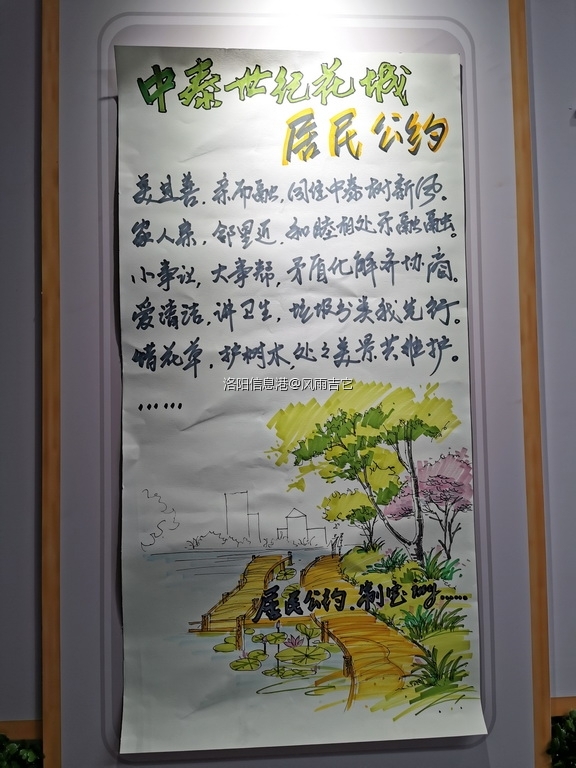 中泰世纪花城
居民公约
美且善,亲而融,同住中泰树新风。
家人亲,邻里近,和睦相处乐融融。
小事让,大事帮,矛盾化解齐协商。
爱清洁,讲卫生,垃圾分类我先行。
惜花草,护树木,处处美景共维护。
……
洛阳信息港@风雨吉它
居民公约.制定